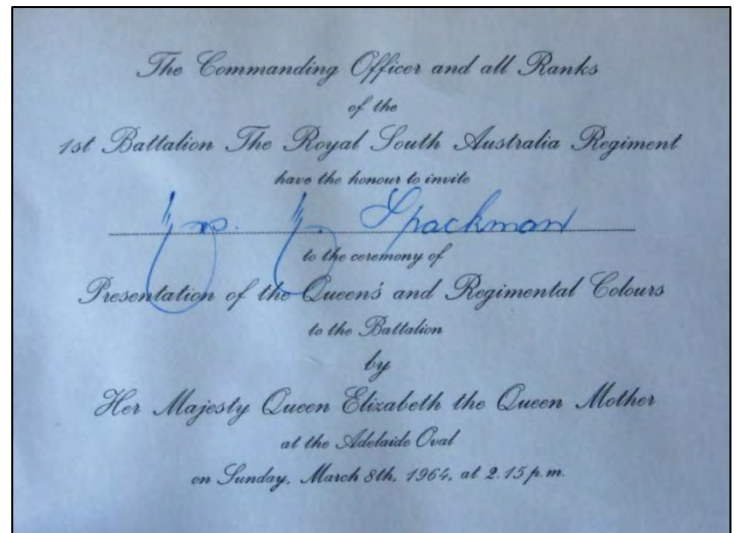 The Commanding Officer and all Ranks
of the
1st Battalion The Royal South Australia Regiment
have the honour to invite
Spackman
to the ceremony of
Presentation of the Queen's and Regimental Colours
to the Battalion
by
Her Majesty Queen Elizabeth the Queen Mother
at the Adelaide Oval
on Sunday, March 8th, 1964, at 2.15 p.m.